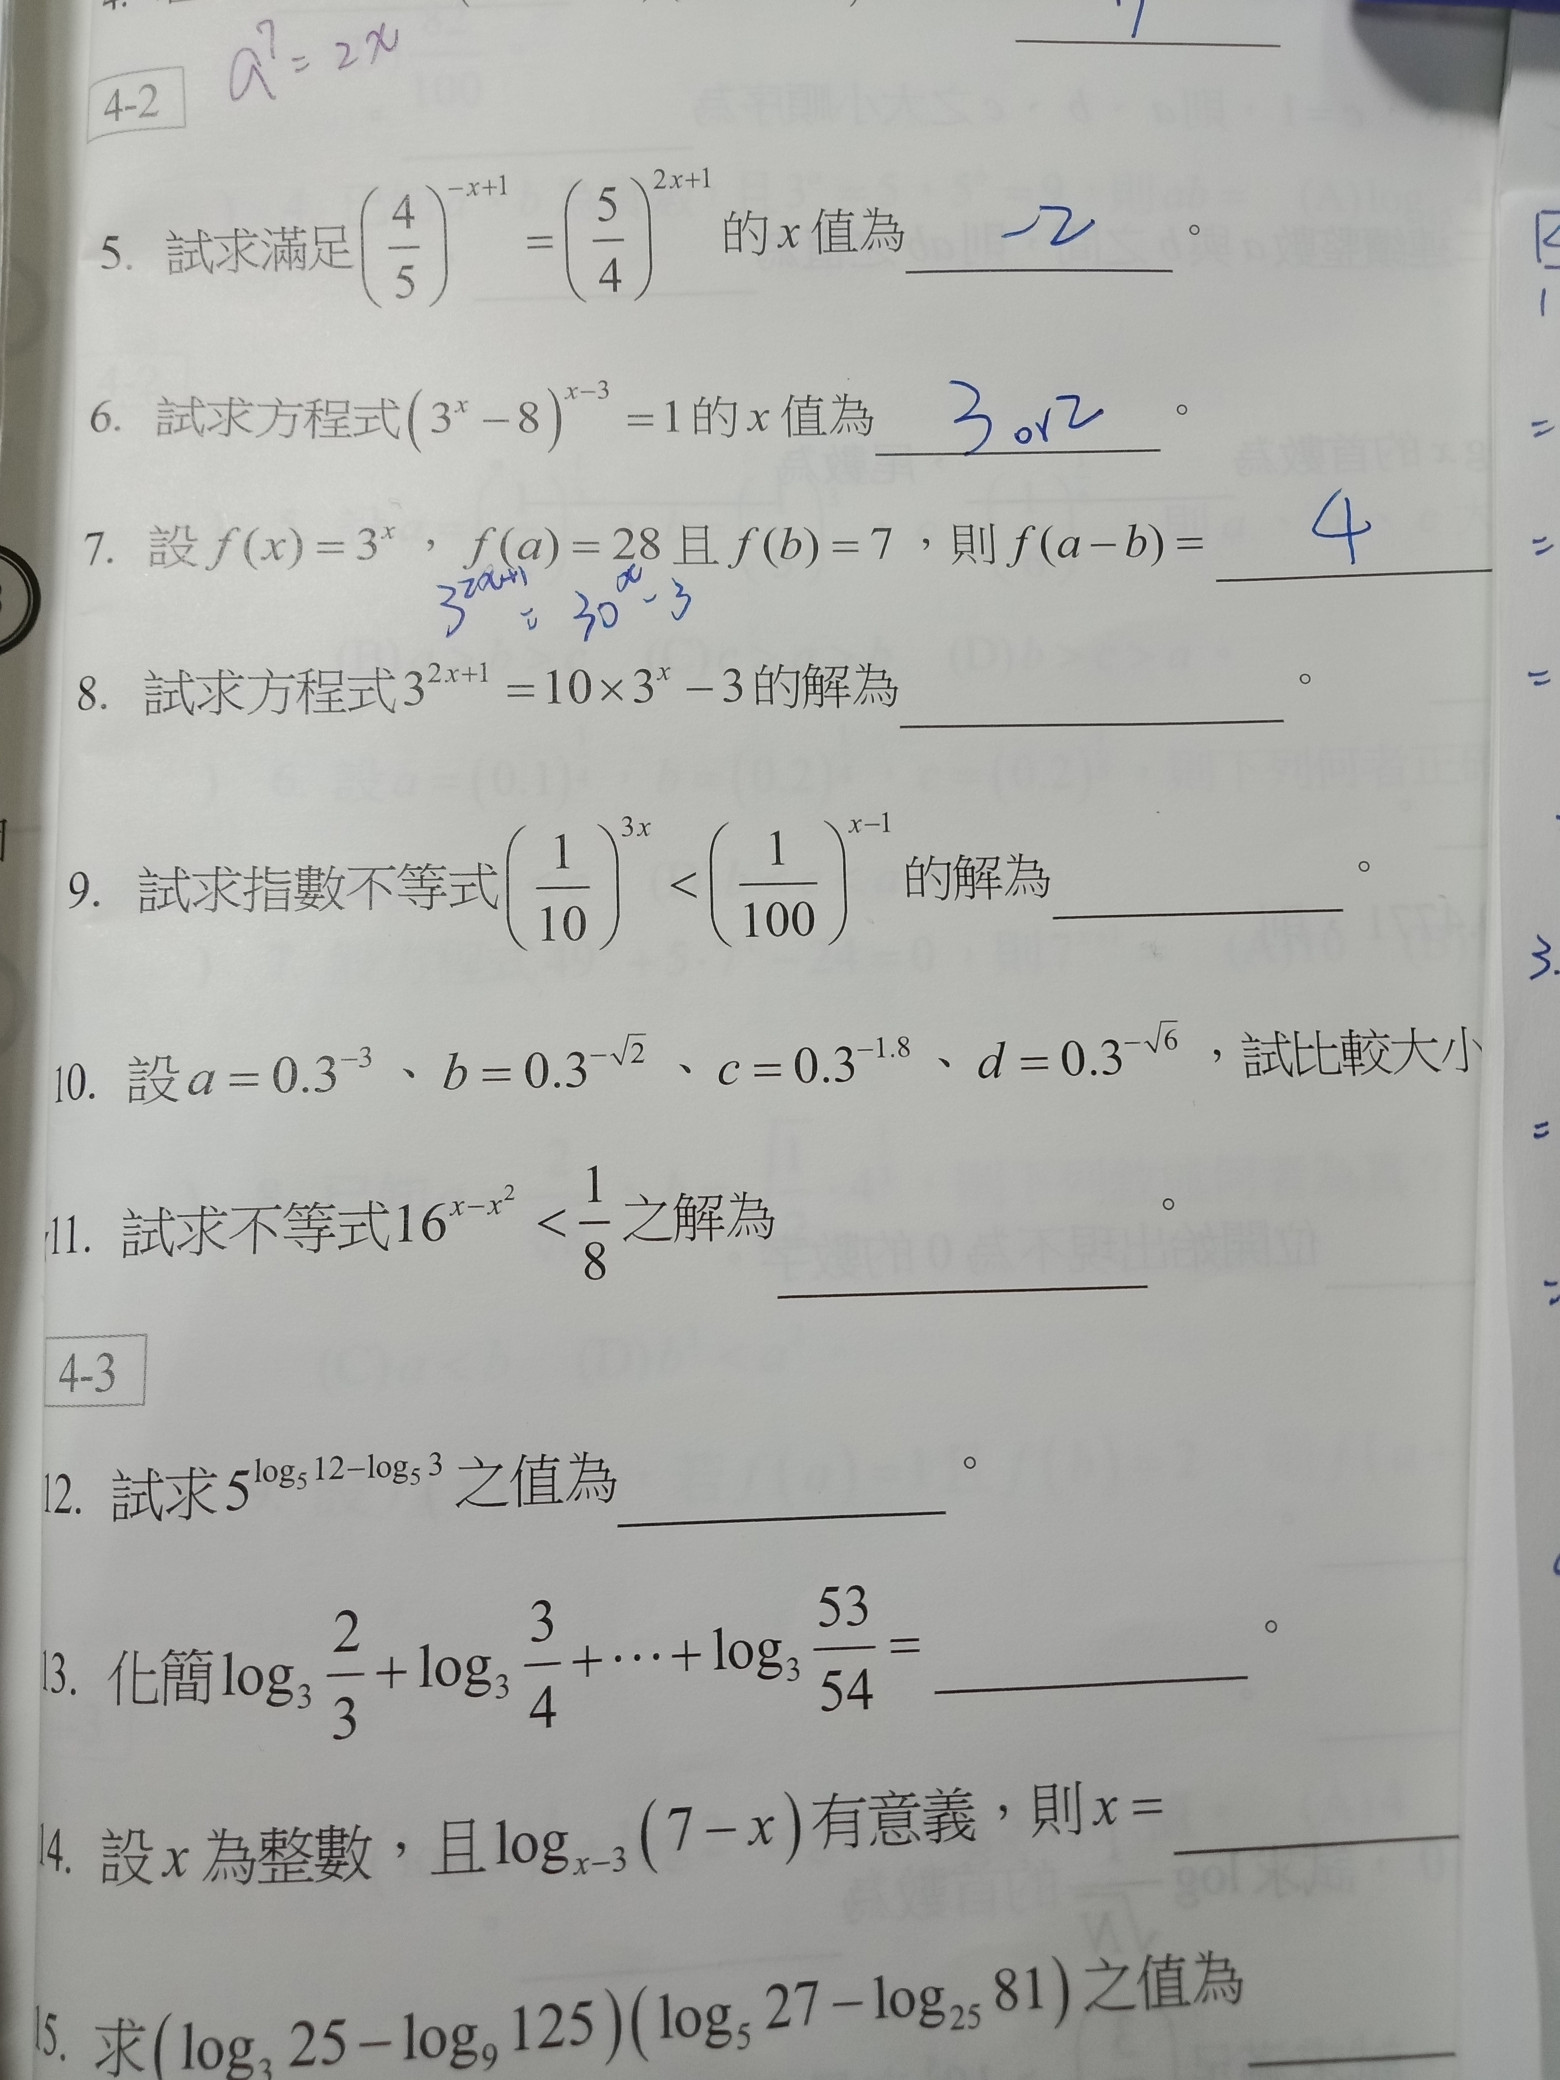 a^7 = 2x
4-2
5. 試求滿足(4/5)^{-x+1} = (5/4)^{2x+1} 的 x 值為 -2 。
6. 試求方程式(3^x − 8)^{x−3} = 1的 x 值為 3 or 2 。
7. 設 f(x) = 3^x ， f(a) = 28 且 f(b) = 7 ，則 f(a−b) = 4
3^{2x+1} = 30^x - 3
8. 試求方程式3^{2x+1} = 10×3^x − 3的解為 。
9. 試求指數不等式(1/10)^{3x} < (1/100)^{x−1} 的解為 。
10. 設 a = 0.3^{−3} 、 b = 0.3^{−√2} 、 c = 0.3^{−1.8} 、 d = 0.3^{−√6} ，試比較大小
11. 試求不等式16^{x−x^2} < 1/8 之解為 。
4-3
12. 試求5^{log_5 12−log_5 3} 之值為 。
13. 化簡log_3 2/3 + log_3 3/4 + ⋯ + log_3 53/54 = 。
14. 設 x 為整數，且log_{x−3}(7−x)有意義，則 x =
15. 求(log_3 25 − log_9 125)(log_5 27 − log_25 81)之值為